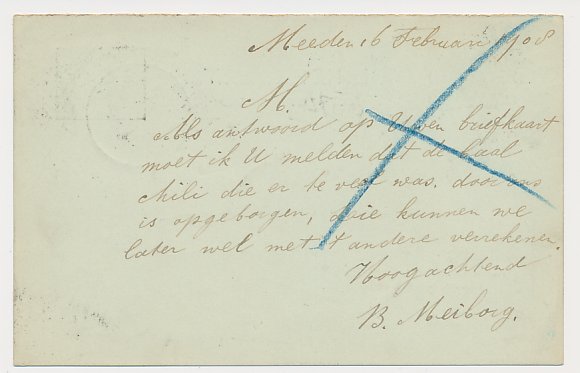 Meeden 16 Februari 1908
M.
Als antwoord op Uwen briefkaart
moet ik U melden dat de baal
chili die er te veel was, door ons
is opgeborgen, die kunnen we
later wel met 't andere verrekenen.
Hoogachtend
B. Meiborg.